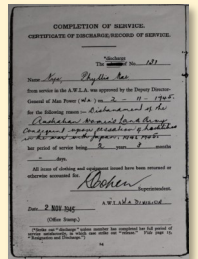 COMPLETION OF SERVICE.
CERTIFICATE OF DISCHARGE/RECORD OF SERVICE.
*discharge
The No. 131
Name Phyllis Mae
from service in the A.W.L.A. was approved by the Deputy Director-
General of Man Power (WA) on 2 - 11 - 1945.
for the following reason :- Disbandment of the
Australian Women's Land Army
consequent upon cessation of hostilities
in the war with Japan,
her period of service being 2 years 8 months
- days.
All items of clothing and equipment issued have been returned or
otherwise accounted for.
Cohen
Superintendent.
Date 2 NOV 1945 A.W.L.A. DIVISION
(Office Stamp.)
["Strike out "discharge" unless member has completed full period of
service satisfactorily, in which case strike out "release." Vide page 19,
"Resignation and Discharge."]